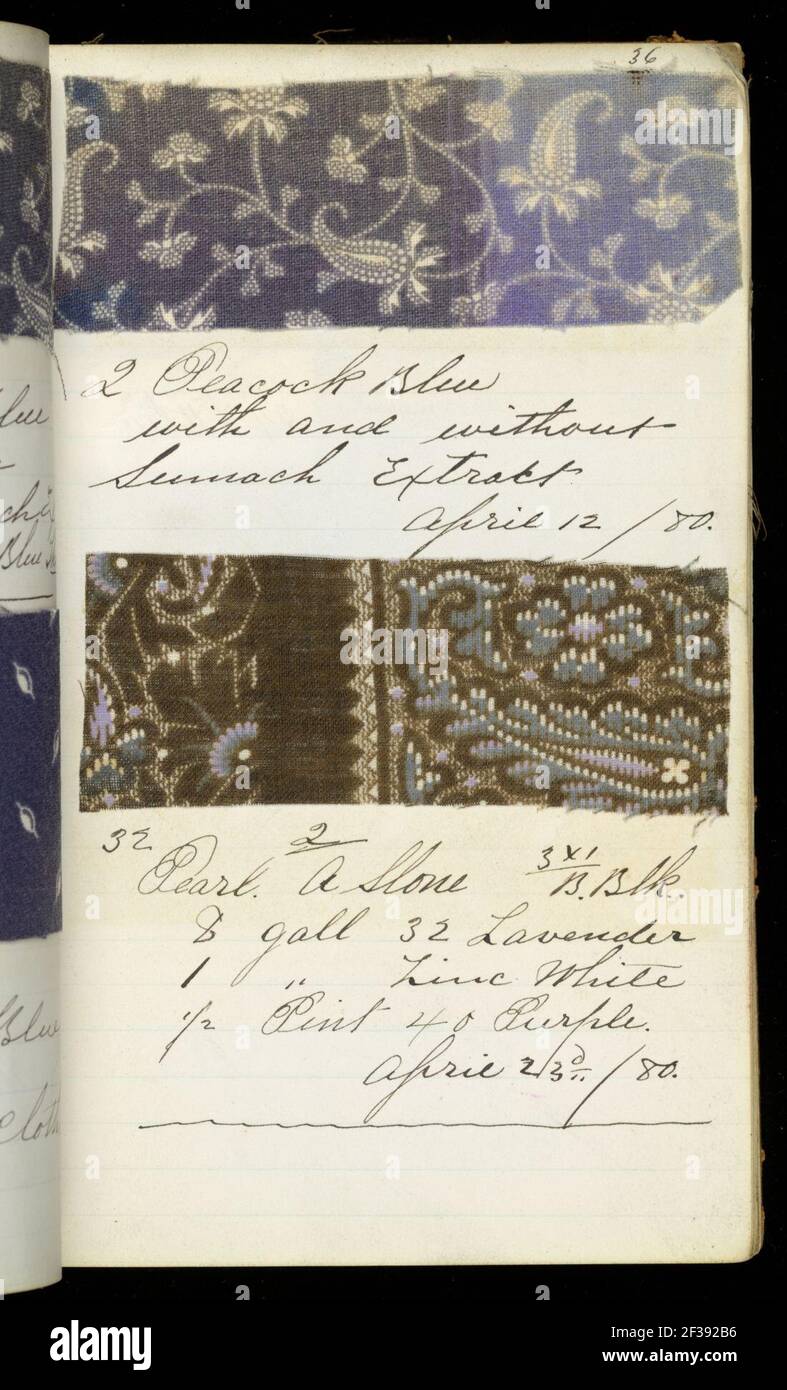 36
2 Peacock Blue
with and without
Sumach Extract
April 12 / 80.
32 2 3x1
Pearl. A Slone B. Blk.
8 gall 32 Lavender
1 " Zinc White
1/2 Pint 40 Purple.
April 23d / 80.
Blue
Blue
cloth
alamy
Image ID: 2F392B6
www.alamy.com